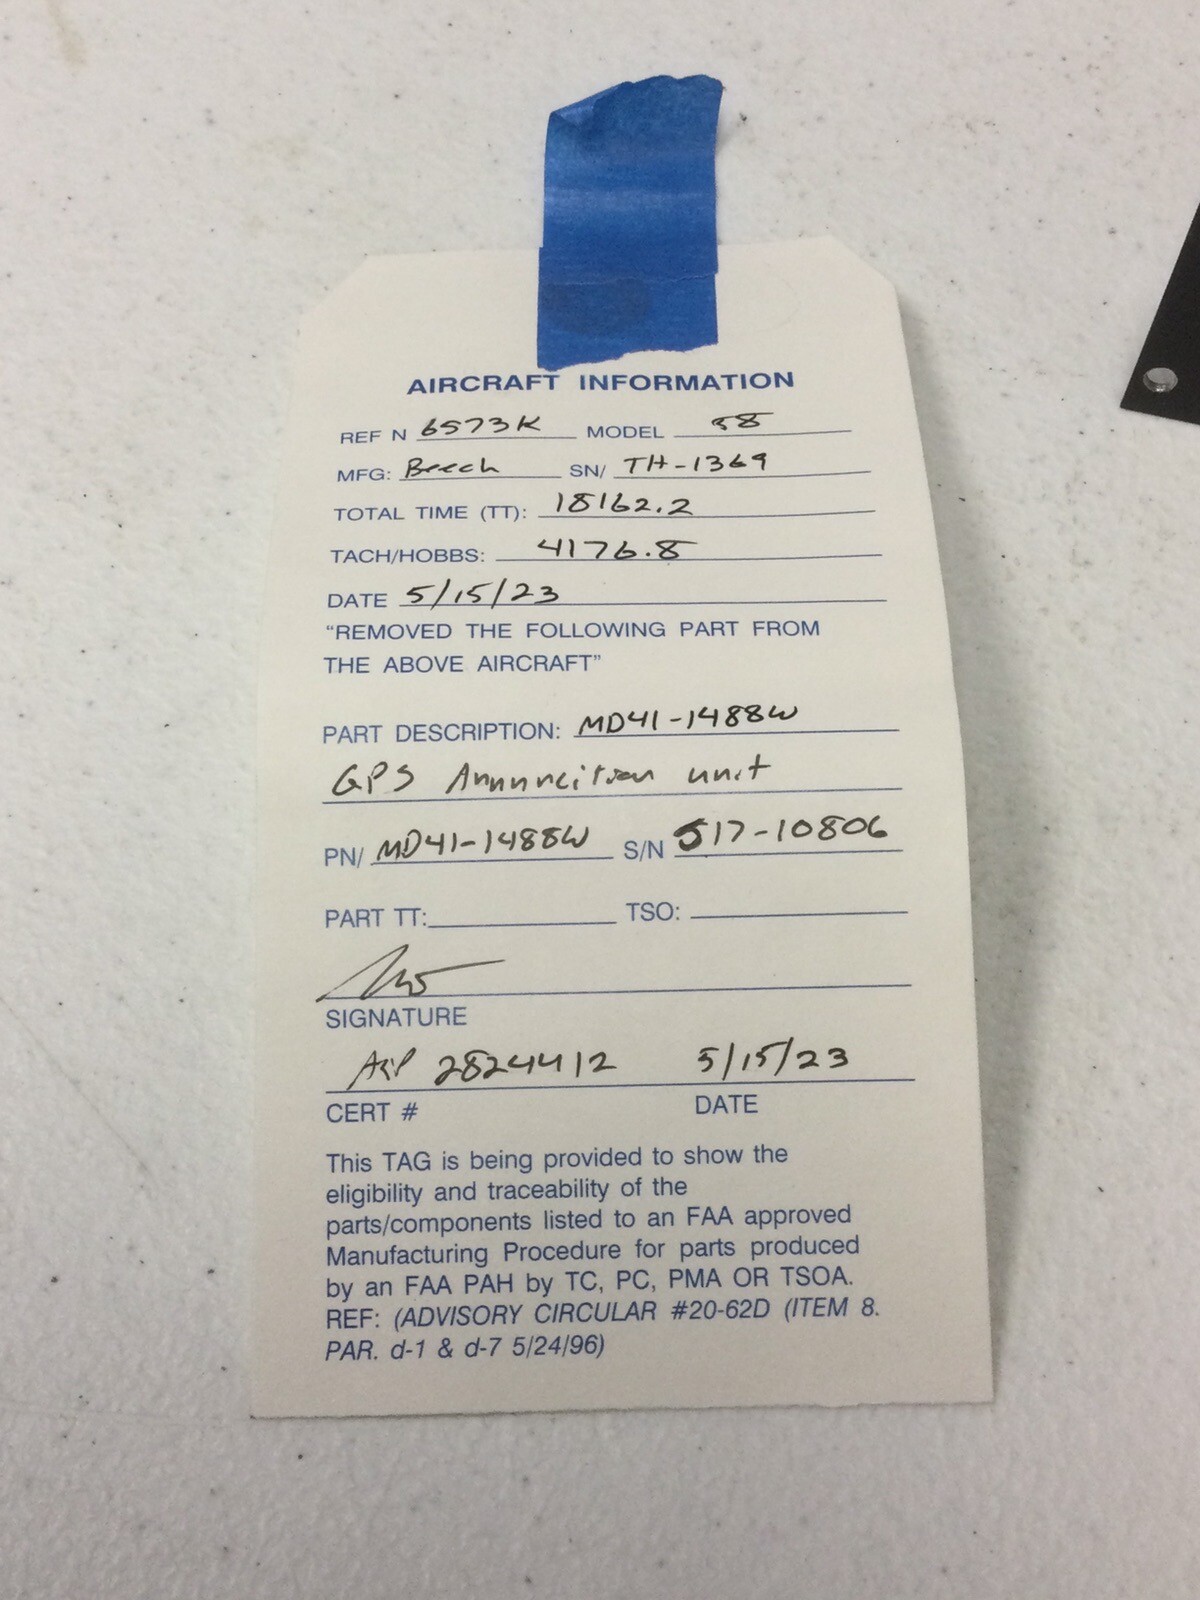 AIRCRAFT INFORMATION
REF N 6573K MODEL 58
MFG: Beech SN/ TH-1369
TOTAL TIME (TT): 18162.2
TACH/HOBBS: 4176.8
DATE 5/15/23
"REMOVED THE FOLLOWING PART FROM
THE ABOVE AIRCRAFT"
PART DESCRIPTION: MD41-1488W
GPS Annunciton unit
PN/ MD41-1488W S/N 517-10806
PART TT: TSO:
SIGNATURE
A&P 2824412 5/15/23
CERT # DATE
This TAG is being provided to show the
eligibility and traceability of the
parts/components listed to an FAA approved
Manufacturing Procedure for parts produced
by an FAA PAH by TC, PC, PMA OR TSOA.
REF: (ADVISORY CIRCULAR #20-62D (ITEM 8.
PAR. d-1 & d-7 5/24/96)